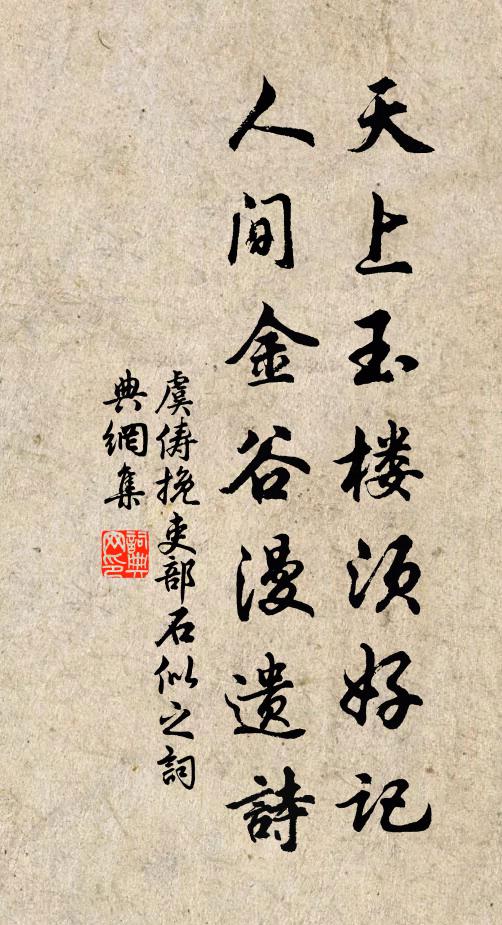 天上玉楼须好记
人间金谷漫遗詩
虞俦挽吏部石似之詞
典網集
詞典网印